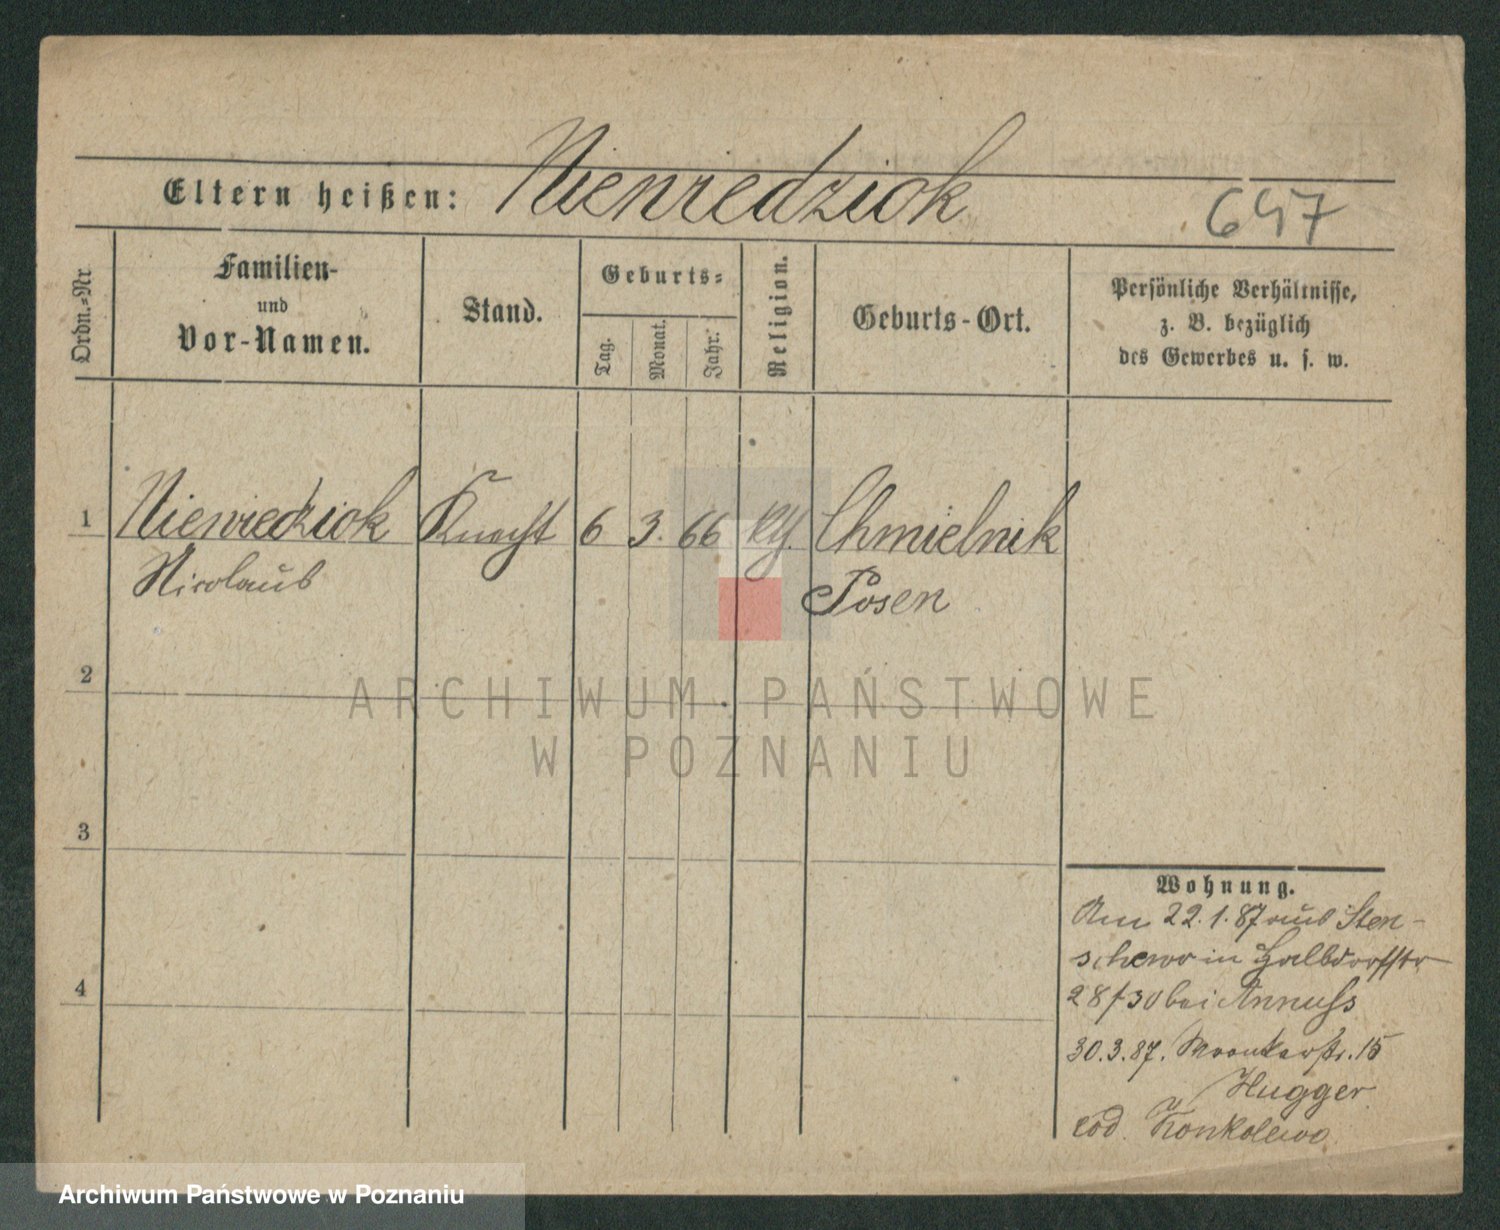 Eltern heißen: Nieviedziok
647
Ordn.=Nr
Familien-
und
Vor-Namen.
Stand.
Geburts=
Tag.
Monat.
Jahr.
Religion.
Geburts-Ort.
Persönliche Verhältnisse,
z. B. bezüglich
des Gewerbes u. s. w.
1 Nieviedziok Knecht 6 3. 66 kth. Chmielnik
Nicolaus Posen
2
ARCHIWUM PAŃSTWOWE
W POZNANIU
3
4
Wohnung.
Am 22.1.87 aus Sten-
schewo in Halbdorfstr
28/30 bei Annuss
30.3.87. Wronkerstr. 15
Hugger
eod. Konkolewo
Archiwum Państwowe w Poznaniu